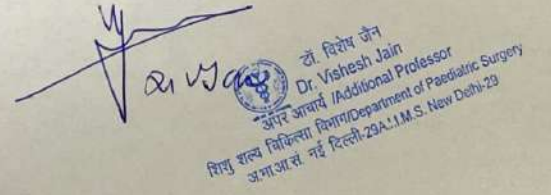 डॉ. विशेष जैन
Dr. Vishesh Jain
अपर आचार्य /Additional Professor
शिशु शल्य चिकित्सा विभाग/Department of Paediatric Surgery
अ.भा.आ.सं. नई दिल्ली-29A.I.I.M.S. New Delhi-29